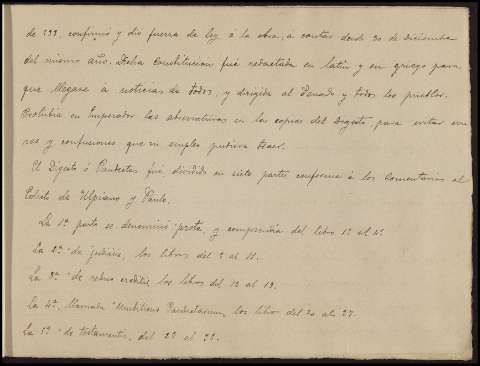 de 533, confirmó y dió fuerza de ley á la obra, a contar desde 30 de Diciembre
del mismo año. Dicha Constitucion fué redactada en latín y en griego para
que llegase á noticias de todos, y dirigida al Senado y todos los pueblos.
Prohibía en Emperador las abreviaturas en las copias del Digesto, para evitar erro
res y confusiones que su empleo pudiera traer.
El Digesto ó Pandectas fué dividido en siete partes conforme á los Comentarios al
Edicto de Ulpiano y Paulo.
La 1ª parte se denominó "prota" y comprendía del libro 1º al 4º
La 2ª "de judiciis", los libros del 5 al 11.
La 3ª "de rebus creditis", los libros del 12 al 19.
La 4ª, llamada "Umbilicus Pandectarum", los libros del 20 al 27.
La 5ª "de testamentis", del 28 al